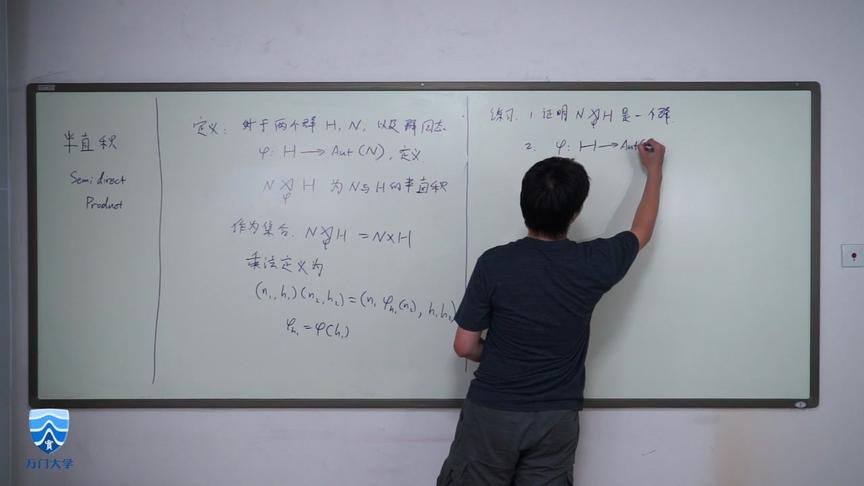 半直积
Semidirect
Product
定义: 对于两个群 H, N, 以及群同态
φ: H → Aut(N), 定义
N ⋊_φ H 为 N 与 H 的半直积
作为集合. N ⋊_φ H = N×H
乘法定义为
(n₁, h₁)(n₂, h₂) = (n₁ φ_{h₁}(n₂), h₁h₂)
φ_{h₁} = φ(h₁)
练习. 1 证明 N ⋊_φ H 是一个群.
2. φ: H → Aut(
万门大学